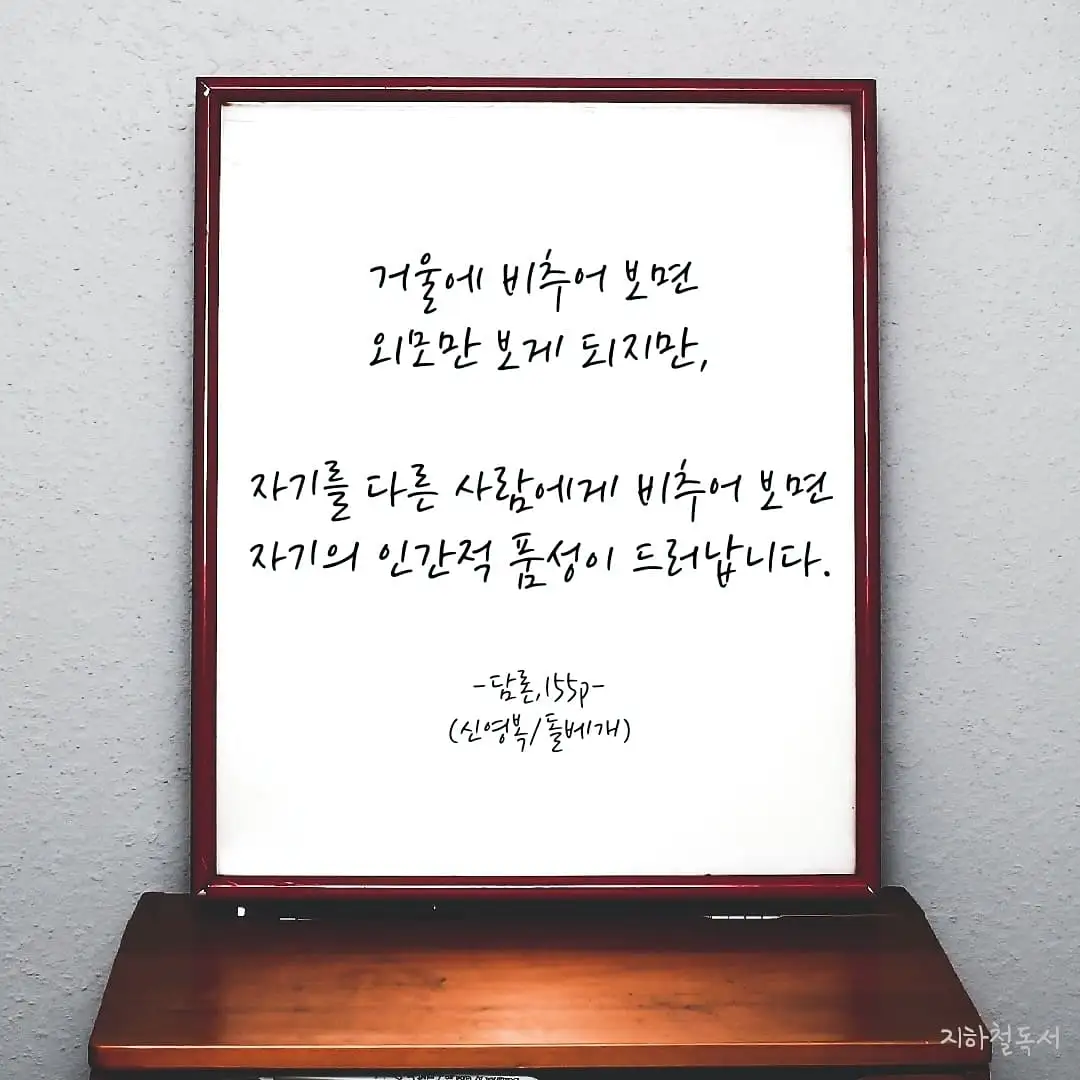 거울에 비추어 보면
외모만 보게 되지만,
자기를 다른 사람에게 비추어 보면
자기의 인간적 품성이 드러납니다.
-담론,155p-
(신영복/돌베개)
지하철독서